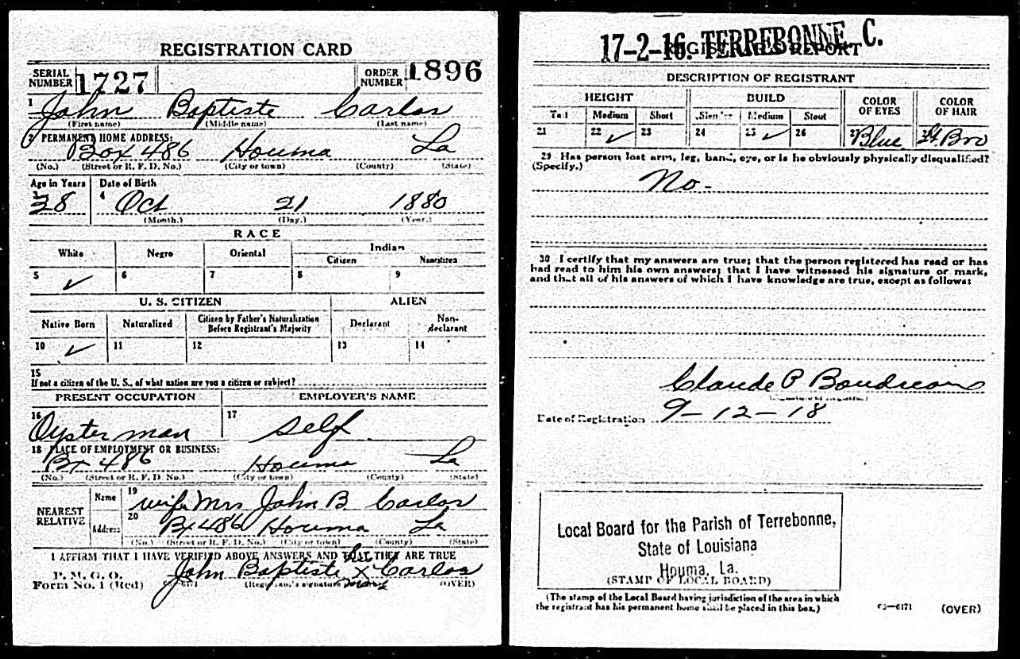 REGISTRATION CARD
SERIAL NUMBER 1727 ORDER NUMBER 1896
1 John Baptiste Carlos
(First name) (Middle name) (Last name)
2 PERMANENT HOME ADDRESS:
Box 486 Houma La
(No.) (Street or R. F. D. No.) (City or town) (County) (State)
Age in Years Date of Birth
3 38 4 Oct 21 1880
(Month.) (Day.) (Year.)
RACE
White Negro Oriental Indian
Citizen Noncitizen
5 ✓ 6 7 8 9
U. S. CITIZEN ALIEN
Native Born Naturalized Citizen by Father's Naturalization Before Registrant's Majority Declarant Non-declarant
10 ✓ 11 12 13 14
15
If not a citizen of the U. S., of what nation are you a citizen or subject?
PRESENT OCCUPATION EMPLOYER'S NAME
16 Oysterman 17 Self
18 PLACE OF EMPLOYMENT OR BUSINESS:
Bx 486 Houma La
(No.) (Street or R. F. D. No.) (City or town) (County) (State)
NEAREST RELATIVE Name 19 wife Mrs John B Carlos
Address 20 Bx 486 Houma La
(No.) (Street or R. F. D. No.) (City or town) (County) (State)
I AFFIRM THAT I HAVE VERIFIED ABOVE ANSWERS AND THAT THEY ARE TRUE
P. M. G. O.
Form No. 1 (Red) John Baptiste his X mark Carlos
(Registrant's signature or mark) (OVER)
17-2-16. TERREBONNE, C.
REGISTRAR'S REPORT
DESCRIPTION OF REGISTRANT
HEIGHT BUILD COLOR OF EYES COLOR OF HAIR
Tall Medium Short Slender Medium Stout
21 22 ✓ 23 24 25 ✓ 26 27 Blue 28 Lt. Bro
29 Has person lost arm, leg, hand, eye, or is he obviously physically disqualified?
(Specify.)
No.
30 I certify that my answers are true; that the person registered has read or has
had read to him his own answers; that I have witnessed his signature or mark,
and that all of his answers of which I have knowledge are true, except as follows:
Claude P Boudreaux
Date of Registration 9-12-18
Local Board for the Parish of Terrebonne,
State of Louisiana
Houma, La.
(STAMP OF LOCAL BOARD)
(The stamp of the Local Board having jurisdiction of the area in which
the registrant has his permanent home shall be placed in this box.)
03—6171 (OVER)